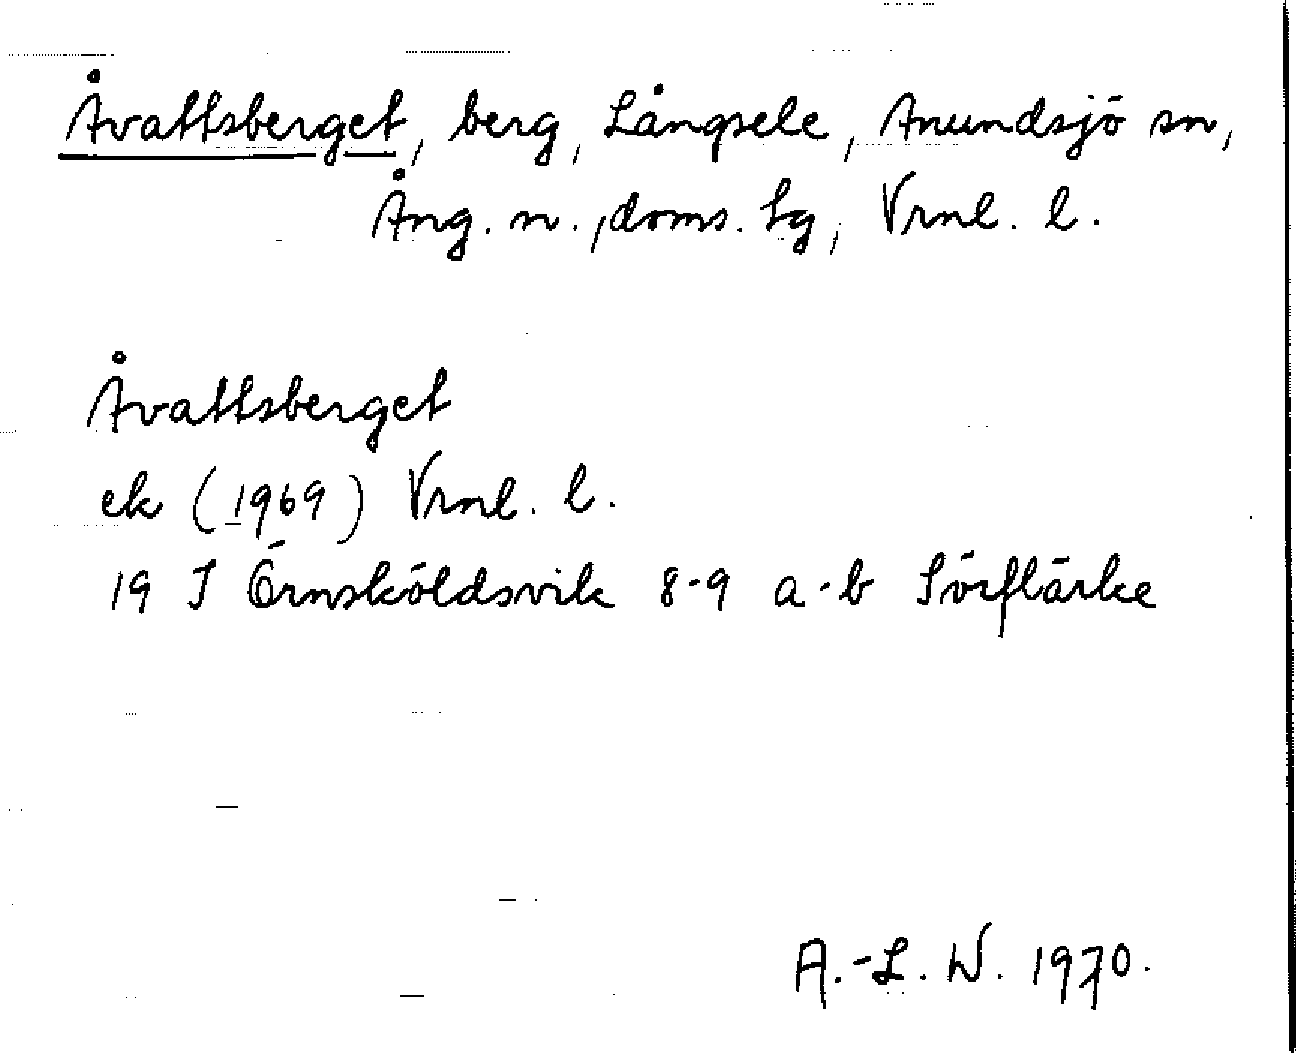 Åvattsberget, berg, Långsele, Anundsjö sn,
Ång. n., doms. lg, Vrnl. l.
Åvattsberget
ek (1969) Vrnl. l.
19 J Örnsköldsvik 8-9 a-b Sörflärke
A.-L. W. 1970.